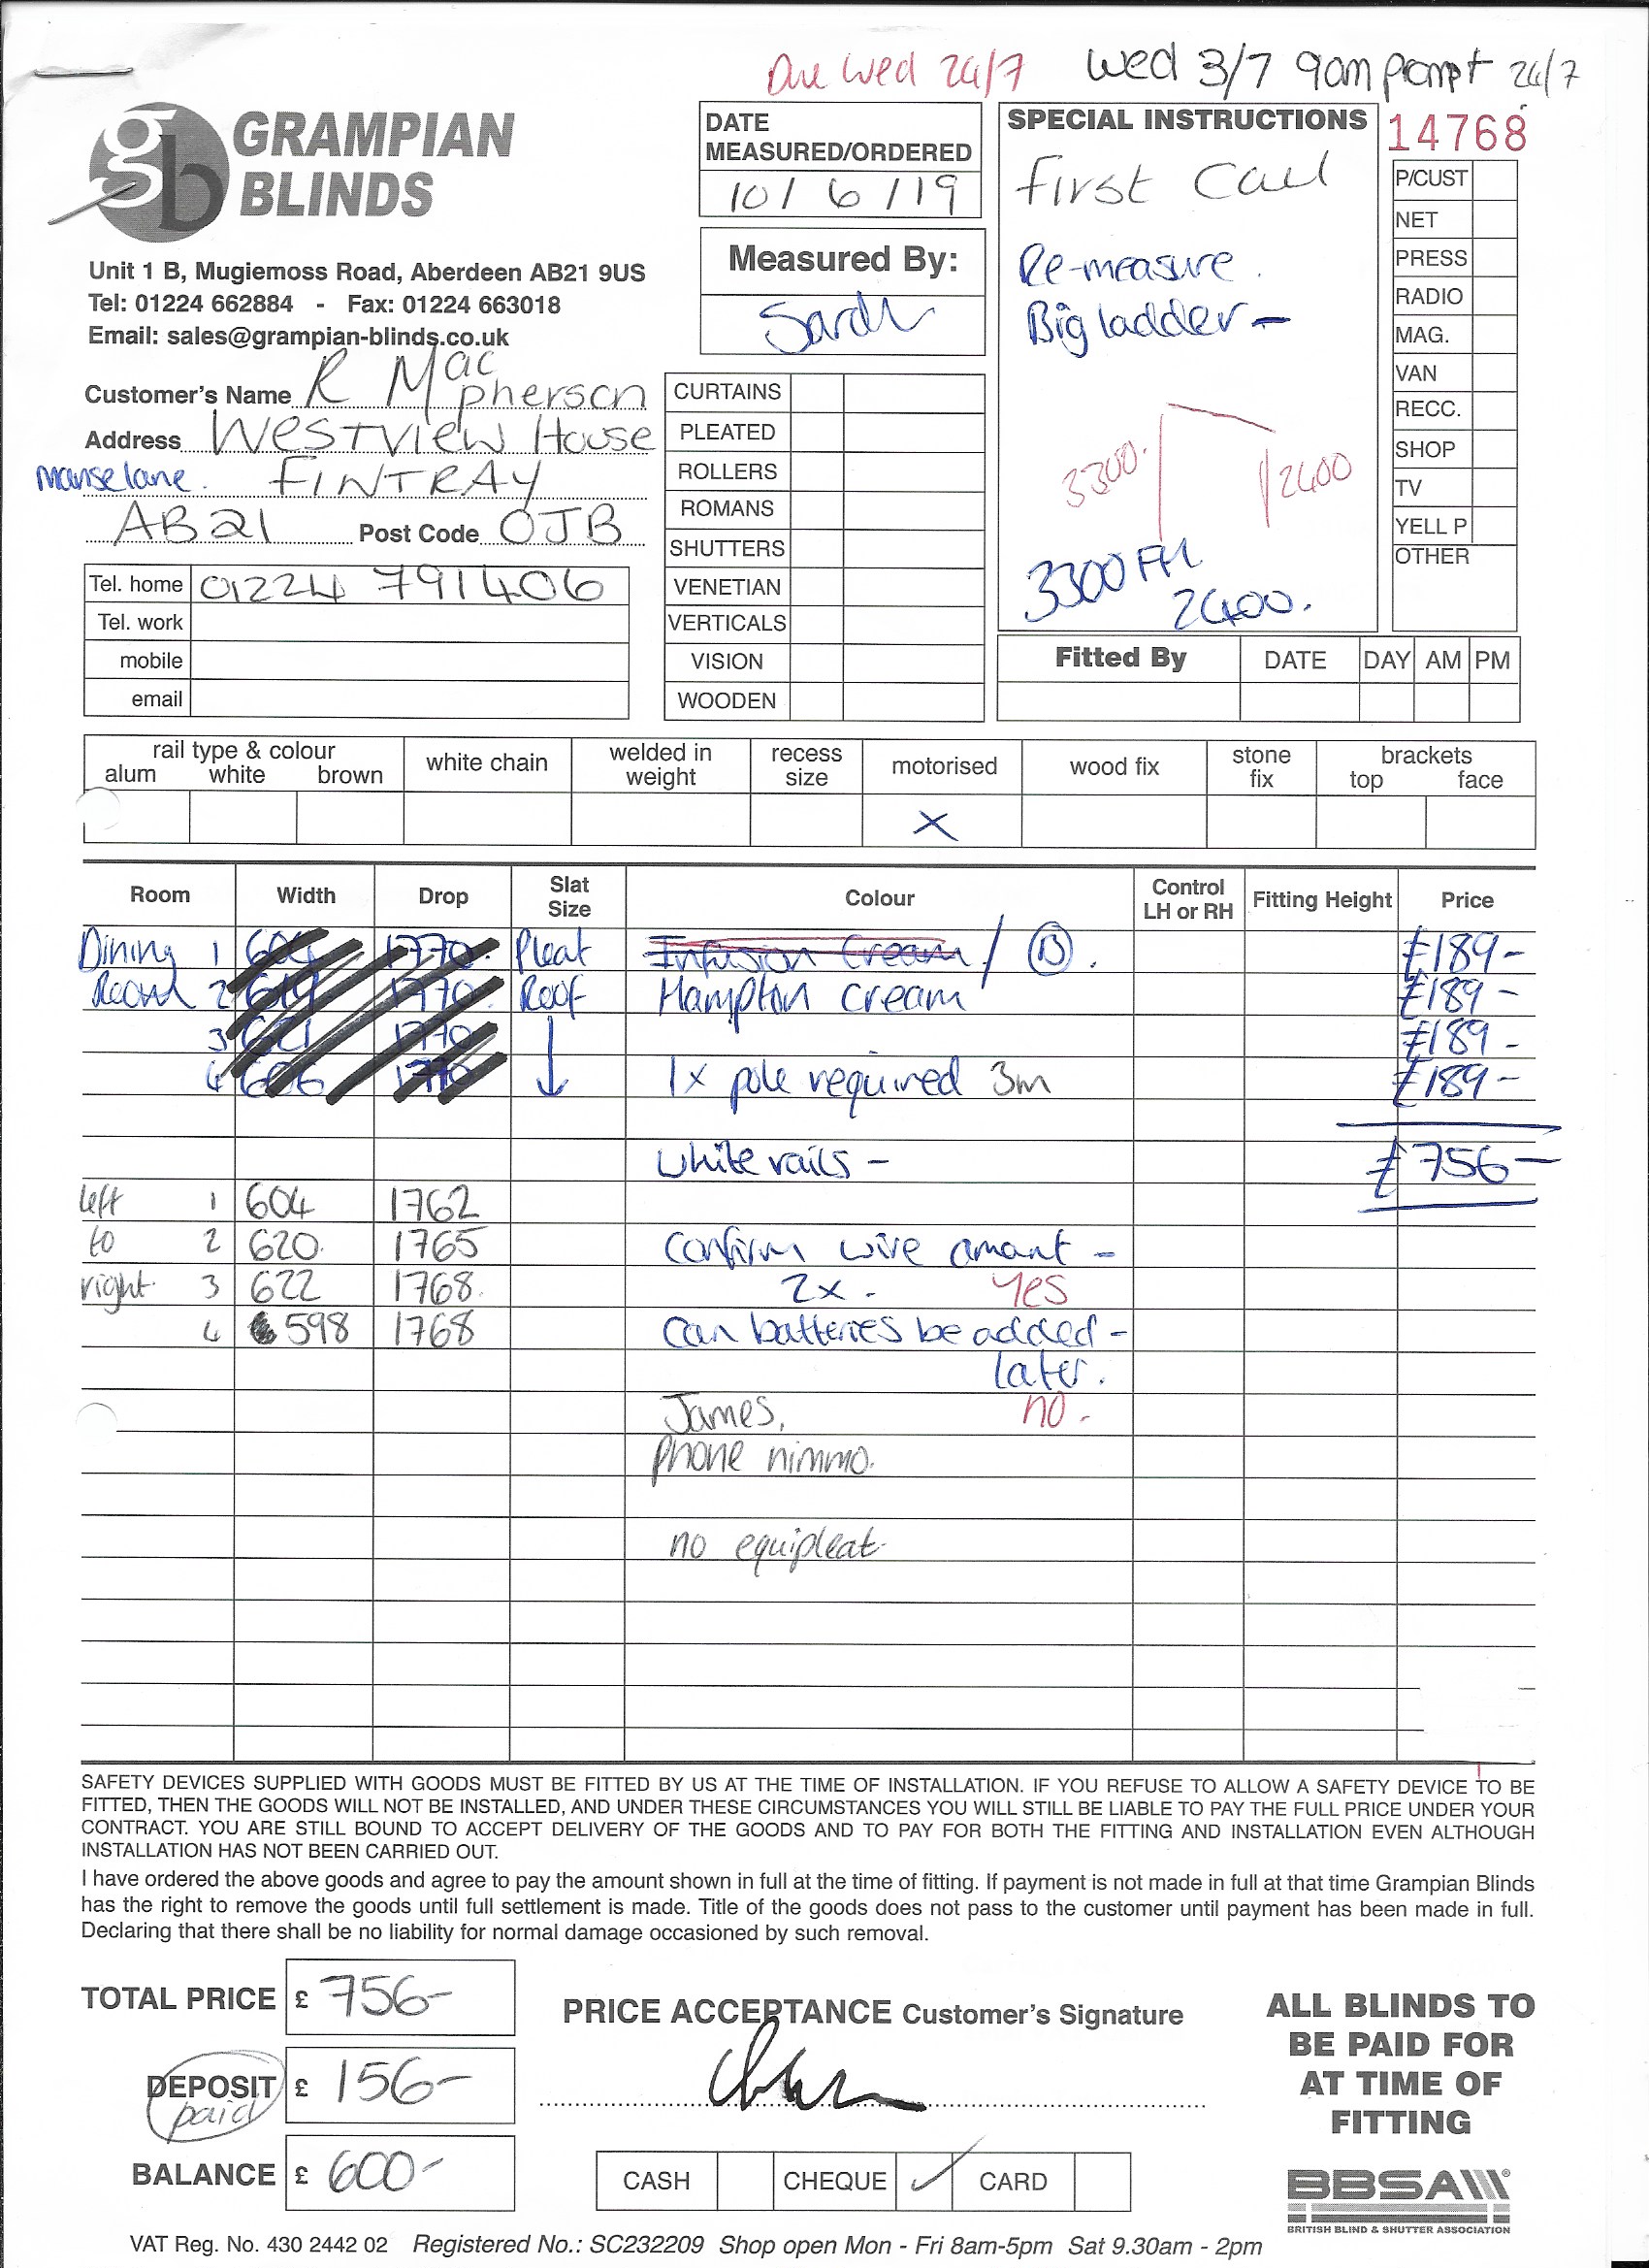 Due Wed 24/7 Wed 3/7 9am prompt 24/7
GRAMPIAN
BLINDS
Unit 1 B, Mugiemoss Road, Aberdeen AB21 9US
Tel: 01224 662884 - Fax: 01224 663018
Email: sales@grampian-blinds.co.uk
Customer's Name R Macpherson
Address Westview House
Manse lane. FINTRAY
AB21 Post Code 0JB
Tel. home 01224 791406
Tel. work
mobile
email
DATE
MEASURED/ORDERED
10/6/19
Measured By:
Sarah
CURTAINS
PLEATED
ROLLERS
ROMANS
SHUTTERS
VENETIAN
VERTICALS
VISION
WOODEN
SPECIAL INSTRUCTIONS
First Call
Re-measure.
Big ladder -
3300. 2400
3300 FH
2400.
14768
P/CUST
NET
PRESS
RADIO
MAG.
VAN
RECC.
SHOP
TV
YELL P
OTHER
Fitted By DATE DAY AM PM
rail type & colour
alum white brown
white chain
welded in
weight
recess
size
motorised
X
wood fix
stone
fix
brackets
top face
Room Width Drop Slat Size Colour Control LH or RH Fitting Height Price
Dining 1 604 1770. Pleat Infusion Cream / B. £189-
Room 2 619 1770. Roof Hampton Cream £189-
3 621 1770 £189-
4 606 1770 1x pole required 3m £189-
White rails - £756-
left 1 604 1762
to 2 620. 1765 Confirm wire amount -
right. 3 622 1768. 2x. Yes
4 598 1768 Can batteries be added -
later.
James, no.
Phone nimmo.
no equipleat.
SAFETY DEVICES SUPPLIED WITH GOODS MUST BE FITTED BY US AT THE TIME OF INSTALLATION. IF YOU REFUSE TO ALLOW A SAFETY DEVICE TO BE
FITTED, THEN THE GOODS WILL NOT BE INSTALLED, AND UNDER THESE CIRCUMSTANCES YOU WILL STILL BE LIABLE TO PAY THE FULL PRICE UNDER YOUR
CONTRACT. YOU ARE STILL BOUND TO ACCEPT DELIVERY OF THE GOODS AND TO PAY FOR BOTH THE FITTING AND INSTALLATION EVEN ALTHOUGH
INSTALLATION HAS NOT BEEN CARRIED OUT.
I have ordered the above goods and agree to pay the amount shown in full at the time of fitting. If payment is not made in full at that time Grampian Blinds
has the right to remove the goods until full settlement is made. Title of the goods does not pass to the customer until payment has been made in full.
Declaring that there shall be no liability for normal damage occasioned by such removal.
TOTAL PRICE £ 756-
DEPOSIT £ 156-
paid
BALANCE £ 600-
PRICE ACCEPTANCE Customer's Signature
CASH CHEQUE ✓ CARD
ALL BLINDS TO
BE PAID FOR
AT TIME OF
FITTING
BBSA
BRITISH BLIND & SHUTTER ASSOCIATION
VAT Reg. No. 430 2442 02 Registered No.: SC232209 Shop open Mon - Fri 8am-5pm Sat 9.30am - 2pm